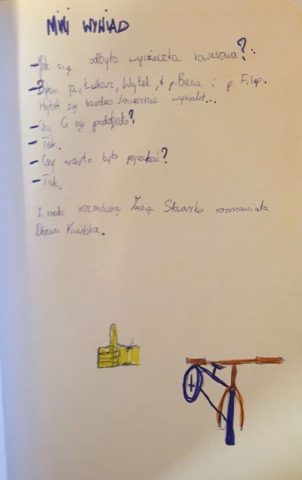 MINI WYWIAD
- Jak się odbyła wycieczka rowerowa?
- Byłam ja, Łukasz, Wojtek, p. Basia i p. Filip.
Wojtek się bardzo śmiesznie wywalił...
- Czy Ci się podobało?
- Tak.
- Czy warto było pojechać?
- Tak.
Z mało rozmowną Zuzą rozmawiała